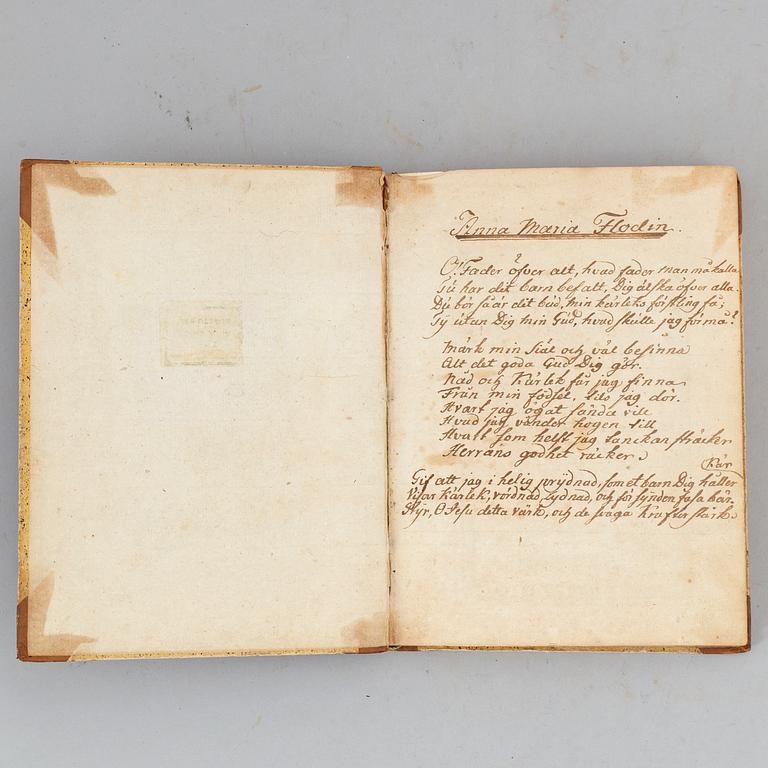 Anna Maria Flodin.
O! Fader öfver alt, hvad fader man må kalla
Tu har dit barn befalt, Dig älska öfver alla
Du bör så är dit bud, min kärleks förstling få;
Ty utan Dig min Gud, hvad skulle jag förmå!
Märk min Siäl och väl besinna
Alt det goda Gud Dig gör.
Nåd och Kärlek får jag finna
Från min födsel, tils jag dör.
Hvart jag ögat sända vill
Hvad jag vänder hogen till
Hvart som helst jag tanckan sträcker
Herrans godhet räcker.
kär
Gif att jag i helig prydnad, som et barn Dig håller
Visar kärlek, vördnad, lydnad, och för synden fasa bär.
Styr, O Jesu detta värk, och de svaga Krafter stärk.